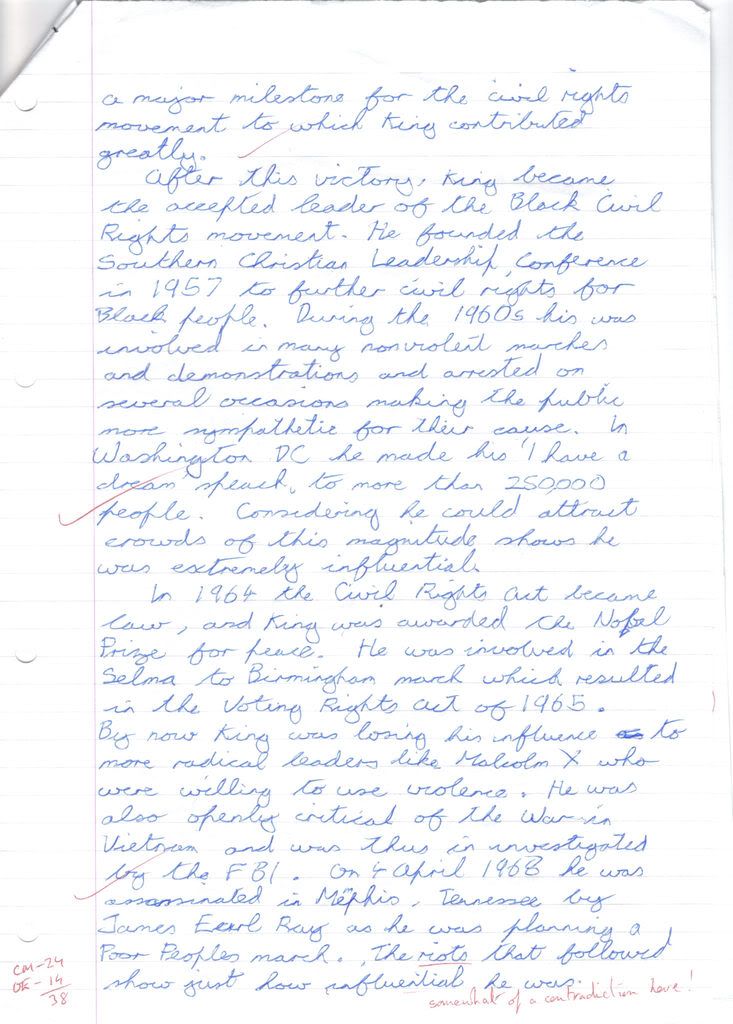 a major milestone for the civil rights
movement to which King contributed
greatly.
After this victory, King became
the accepted leader of the Black Civil
Rights movement. He founded the
Southern Christian Leadership Conference
in 1957 to further civil rights for
Black people. During the 1960s his was
involved in many nonviolent marches
and demonstrations and arrested on
several occasions making the public
more sympathetic for their cause. In
Washington DC he made his 'I have a
dream' speach, to more than 250,000
people. Considering he could attract
crowds of this magnitude shows he
was extremely influential.
In 1964 the Civil Rights Act became
law, and King was awarded the Nobel
Prize for peace. He was involved in the
Selma to Birmingham march which resulted
in the Voting Rights Act of 1965.
By now King was losing his influence to
more radical leaders like Malcolm X who
were willing to use violence. He was
also openly critical of the War in
Vietnam and was thus in investigated
by the FBI. On 4 April 1968 he was
assassinated in Memphis, Tennessee by
James Earl Ray as he was planning a
Poor Peoples march. The riots that followed
show just how influential he was.
somewhat of a contradiction here!
CM-24
OE-14
38